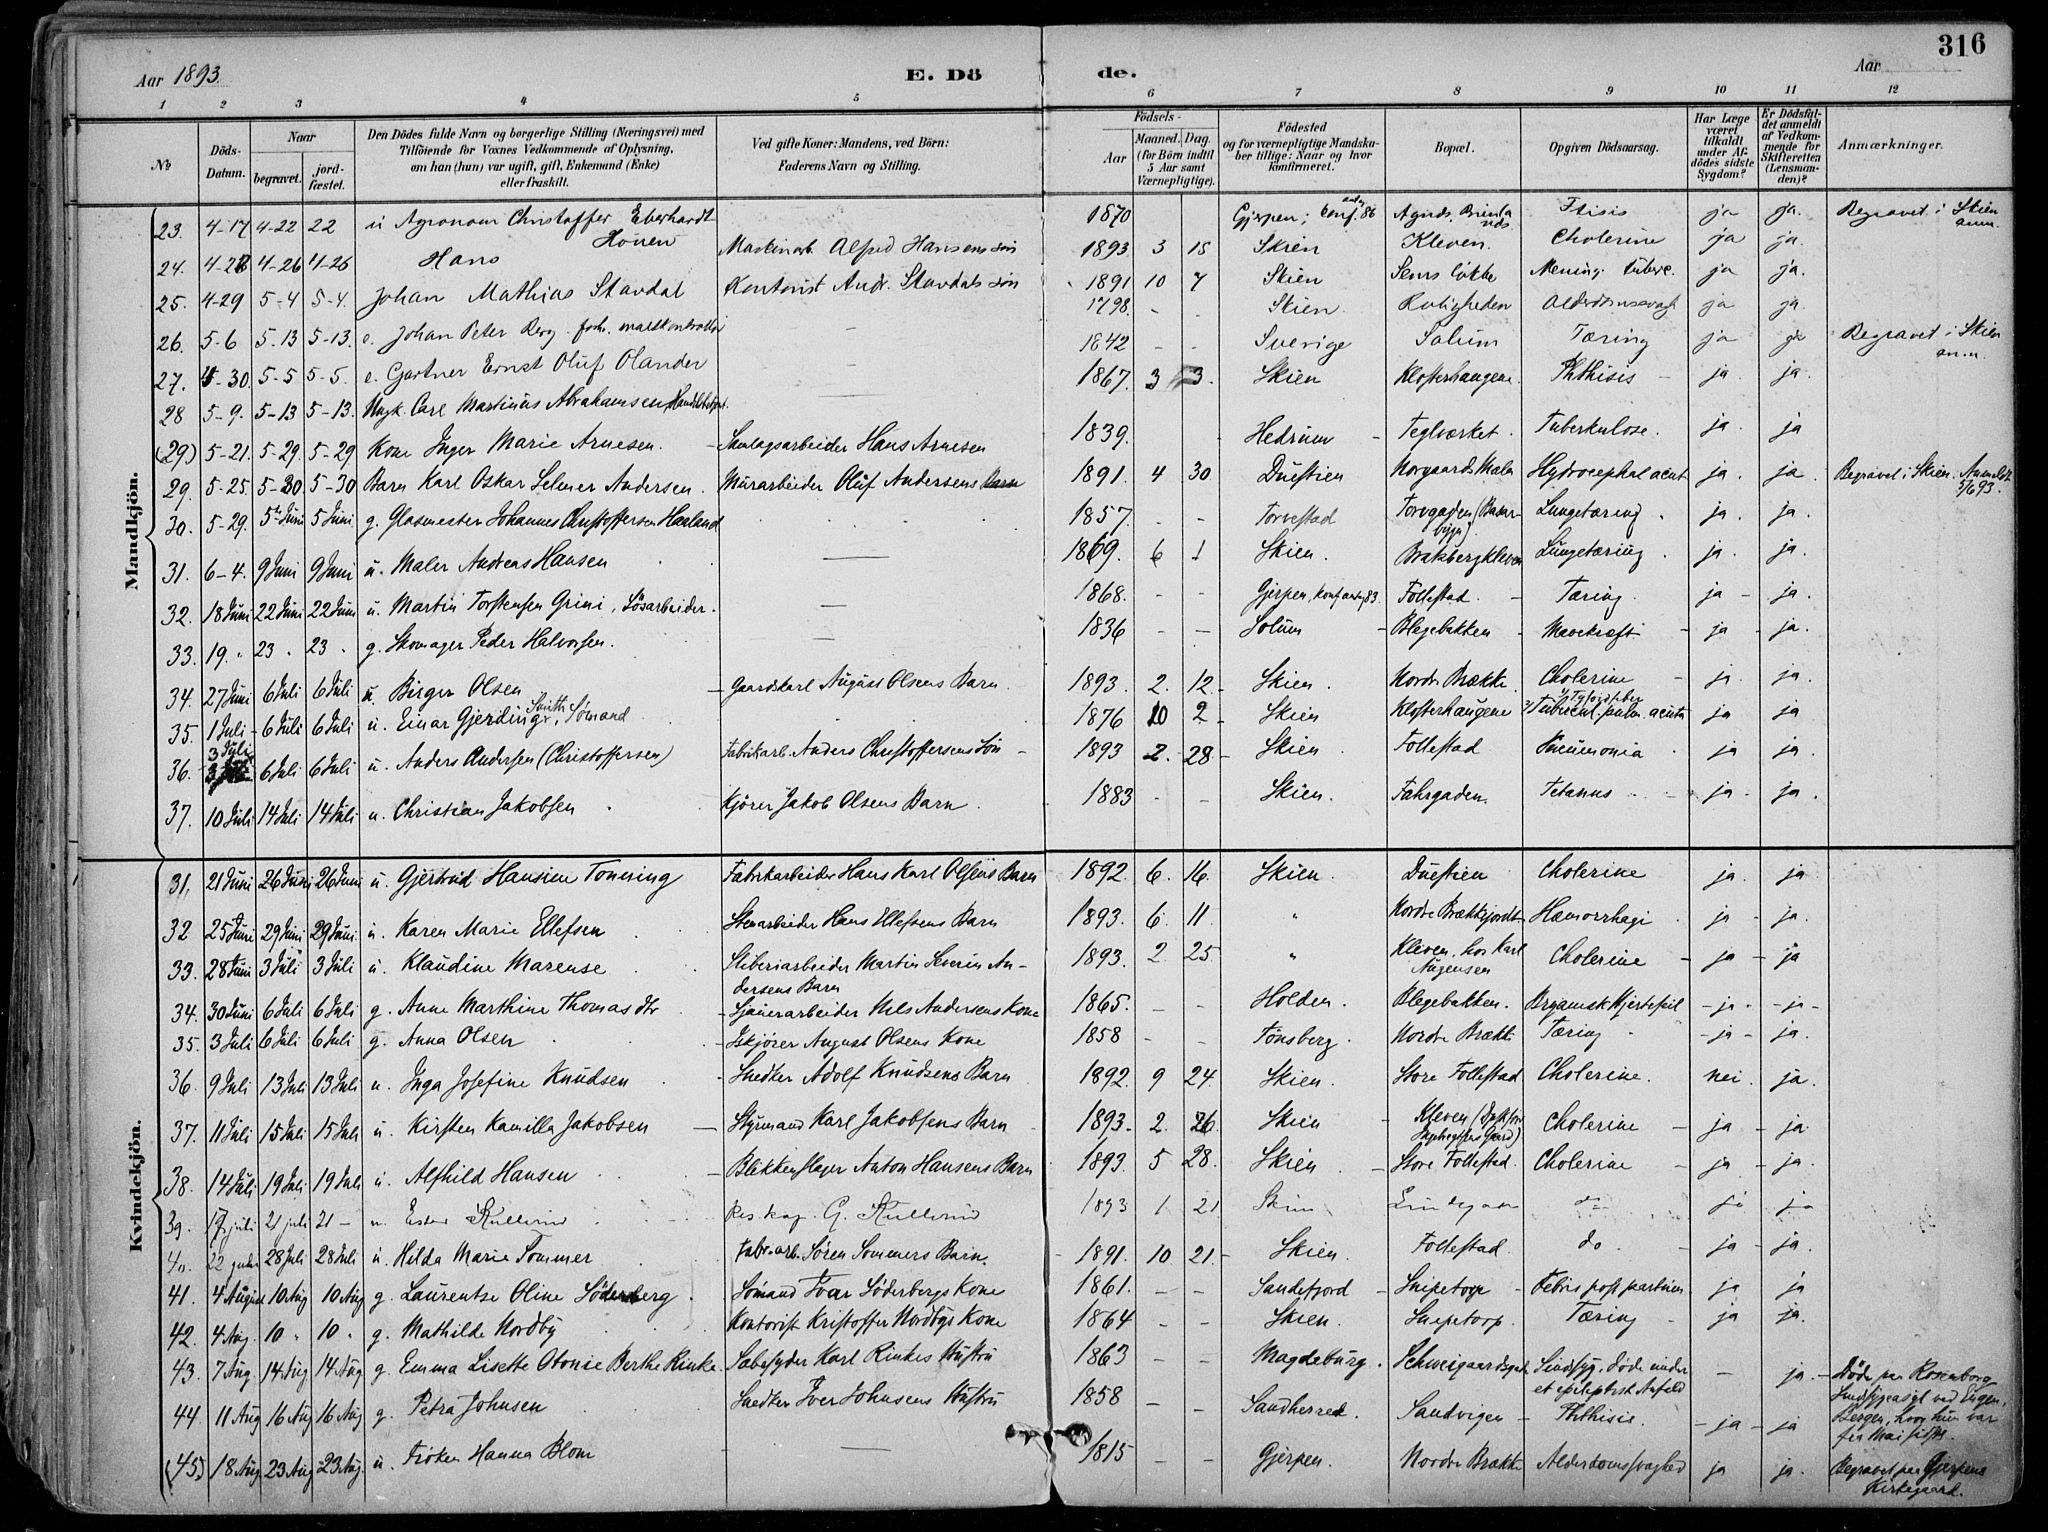 316
Aar 1893.
E. Dö
de.
Aar
1 2 3 4 5 6 7 8 9 10 11 12
No
Döds-Datum.
Naar
begravet.
jordfæstet.
Den Dödes fulde Navn og borgerlige Stilling (Næringsvei) med
Tilföiende for Voxnes Vedkommende af Oplysning,
om han (hun) var ugift, gift, Enkemand (Enke)
eller fraskilt.
Ved gifte Koner: Mandens, ved Börn:
Faderens Navn og Stilling.
Födsels-
Aar
Maaned. Dag.
(for Börn indtil
5 Aar samt
Værnepligtige).
Födested
og for værnepligtige Mandska-
ber tillige: Naar og hvor
konfirmeret.
Bopæl.
Opgiven Dödsaarsag.
Har Læge
været
tilkaldt
under Af-
dödes sidste
Sygdom?
Er Dödsfal-
det anmeldt
af Vedkom-
mende for
Skifteretten
(Lensman-
den)?
Anmærkninger.
Mandkjön.
23. 4-17 4-22 22 u Agronom Christoffer Eberhardt Hönen 1870 Gjerpen; conf. 86 Ftisis ja ja. Begravet i Skien anm.
24. 4-23 4-26 4-26 Hans Maskinarb. Alfred Hansens sön 1893 3 15 Skien Kleven. Cholerine ja ja.
25. 4-29 5-4 5-4. Johan Mathias Stavdal Kontorist Andr. Stavdals sön 1891 10 7 Skien Mening. tuberc. ja ja.
26. 5-6 5-13 5-13. e. Johan Peter Berg 1798 - - Skien Rolighedeen ja ja.
27. 4-30. 5-5 5-5. e. Gartner Ernst Oluf Olander 1842 - - Sverige Solum Tæring ja ja Begravet i Skien anm.
28 5-9. 5-13 5-13. Ungk. Carl Martinus Abrahamsen 1867. 3 3. Skien Klosterhaugene. Phthisis - ja. ja.
(29) 5-21. 5-29. 5-29 Kone Inger Marie Arnesen. - Samlagsarbeider Hans Arnesen 1839. Hedrum - Teglværket. Tuberkulose. ja. ja
29. 5-25. 5-30 5-30 Barn Karl Oskar Selmer Andersen. Murarbeider Oluf Andersens Barn 1891. 4 30 Duestien Hydrocephal acut ja. ja. Begravet i Skien. Anmeldt 5/6 93.
30. 5-29. 5te Juni 5 Juni g. Glasmester Johannes Christoffersen Haaland 1857. - - Torvestad Torvgaden (Basarbygn). Lungetæring. ja. ja.
31. 6-4. 9 Juni 9 Juni u. Maler Andreas Hansen 1869. 6 1 Skien. Bratsbergkleven Lungetæring. ja. ja.
32. 18 Juni 22 Juni 22 Juni u. Martin Torstensen Grini, Løsarbeider. 1868. Gjerpen, Konf 83. Follestad. - Tæring. ja - ja.
33. 19. " 23 " 23 " g. Skomager Peder Halvorsen. 1836 - - Solum - Blegebakken - Mavekræft - ja - ja.
34. 27 Juni 6 Juli 6 Juli u. Birger Olsen - Gaardskarl August Olsens Barn. 1893. 2. 12. Skien. Nordre Brække. Cholerine - ja. ja.
35. 1 Juli - 6 Juli 6 Juli u. Einar Gjerding Smith, Sömand 1876 10 2 Skien Klosterhaugene Tubercul. pulm. acuta ja ja
36. 3 Juli 6 Juli 6 Juli u. Anders Andersen (Christoffersen) Fabrikarb. Anders Christoffersens Sön - 1893 2. 28. Skien. Follestad Pneumonia ja ja.
37. 10 Juli 14 Juli 14 Juli u. Christian Jakobsen Kjörer Jakob Olsens Barn. 1883 - - Skien. Fahrgaden. Tetanus ja. ja.
Kvindekjön.
31. 21 Juni 26 Juni 26 Juni u. Gjertrud Hansine Tonning Fabrikarbeider Hans Karl Olsens Barn 1892. 6. 16. Skien. Duestien Cholerine ja. ja.
32 25 Juni 29 Juni 29 Juni. u. Karen Marie Ellefsen Stenarbeider Hans Ellefsens Barn 1893. 6. 11. " Hæmorrhagi ja - ja.
33. 28 Juni 3 Juli 3 Juli u. Klaudine Marense Sliberiarbeider Martin Severin Andersens Barn 1893. 2. 25 " Kleven, hos Karl Cholerine - ja - ja
34. 30 Juni 6 Juli 6 Juli g. Anne Marthine Thomasdtr - Sjauerarbeider Nels Andersens Kone 1865. - - Holden. Blegebakken. Organisk Hjertefeil - ja - - ja -
35. 3 Juli 6 Juli 6 Juli g. Anna Olsen - Iskjörer August Olsens Kone 1858 - - Tönsberg. Nordre Brække Tæring - ja - ja.
36. 9 Juli 13 Juli 13 Juli u. Inga Josefine Knudsen - Snedker Adolf Knudsens Barn 1892. 9 24. Skien. Store Follestad Cholerine. nei. ja.
37. 11 Juli 15 Juli 15 Juli u. Kirsten Kamilla Jakobsen - Styrmand Karl Jakobsens Barn 1893. 2. 26. Skien - Kleven Cholerine - ja - ja.
38. 14 Juli 19 Juli 19 Juli u. Alfhild Hansen - Blikkenslager Anton Hansens Barn 1893. 5 28. Skien. - Store Follestad. Cholerine - ja - ja.
39. 17 juli 21 juli 21 - u. Ester Kullerud G. Kullerud 1893 1 21 Skien do ja ja
40. 22 juli 28 Juli 28 Juli u. Hilda Marie Sommer Fabr.arb. Sören Sommers Barn. 1891. 10 21. Skien. Follestad. do. - ja - ja.
41. 4 August 10 Aug 10 Aug g. Laurentse Oline Söderberg. Sömand Ivar Söderbergs Kone 1861. - - Sandefjord - Snipetorp - Febris post partum ja ja
42. 4 Aug. 10 " 10 " g. Mathilde Nordby Kontorist Kristoffer Nordbys Kone 1864 - - Skien. Snipetorp. Tæring - ja ja.
43. 7 Aug 14 Aug 14 Aug g. Emma Lisette Otonie Berthe Rinke. Sæbesyder Karl Rinkes Hustru 1863 - - Magdeburg. Sindssyg, döde under et epileptisk Anfald - ja - Döde paa Rosenborg Sindssygeasyl ved Bergen, hvor hun var fra Mai sidst.
44. 11 Aug 16 Aug 16 Aug g. Petra Johnsen Snedker Iver Johnsens Hustru 1858 - - Sandherred. Sandvigen - Phthisis - ja - ja
(45) 18 Aug 23 Aug 23 Aug. u. Fröken Hanna Blom - 1815 - - Gjerpen. Nordre Brække Alderdomssvaghed ja ja. Begravet paa Gjerpens Kirkegaard.